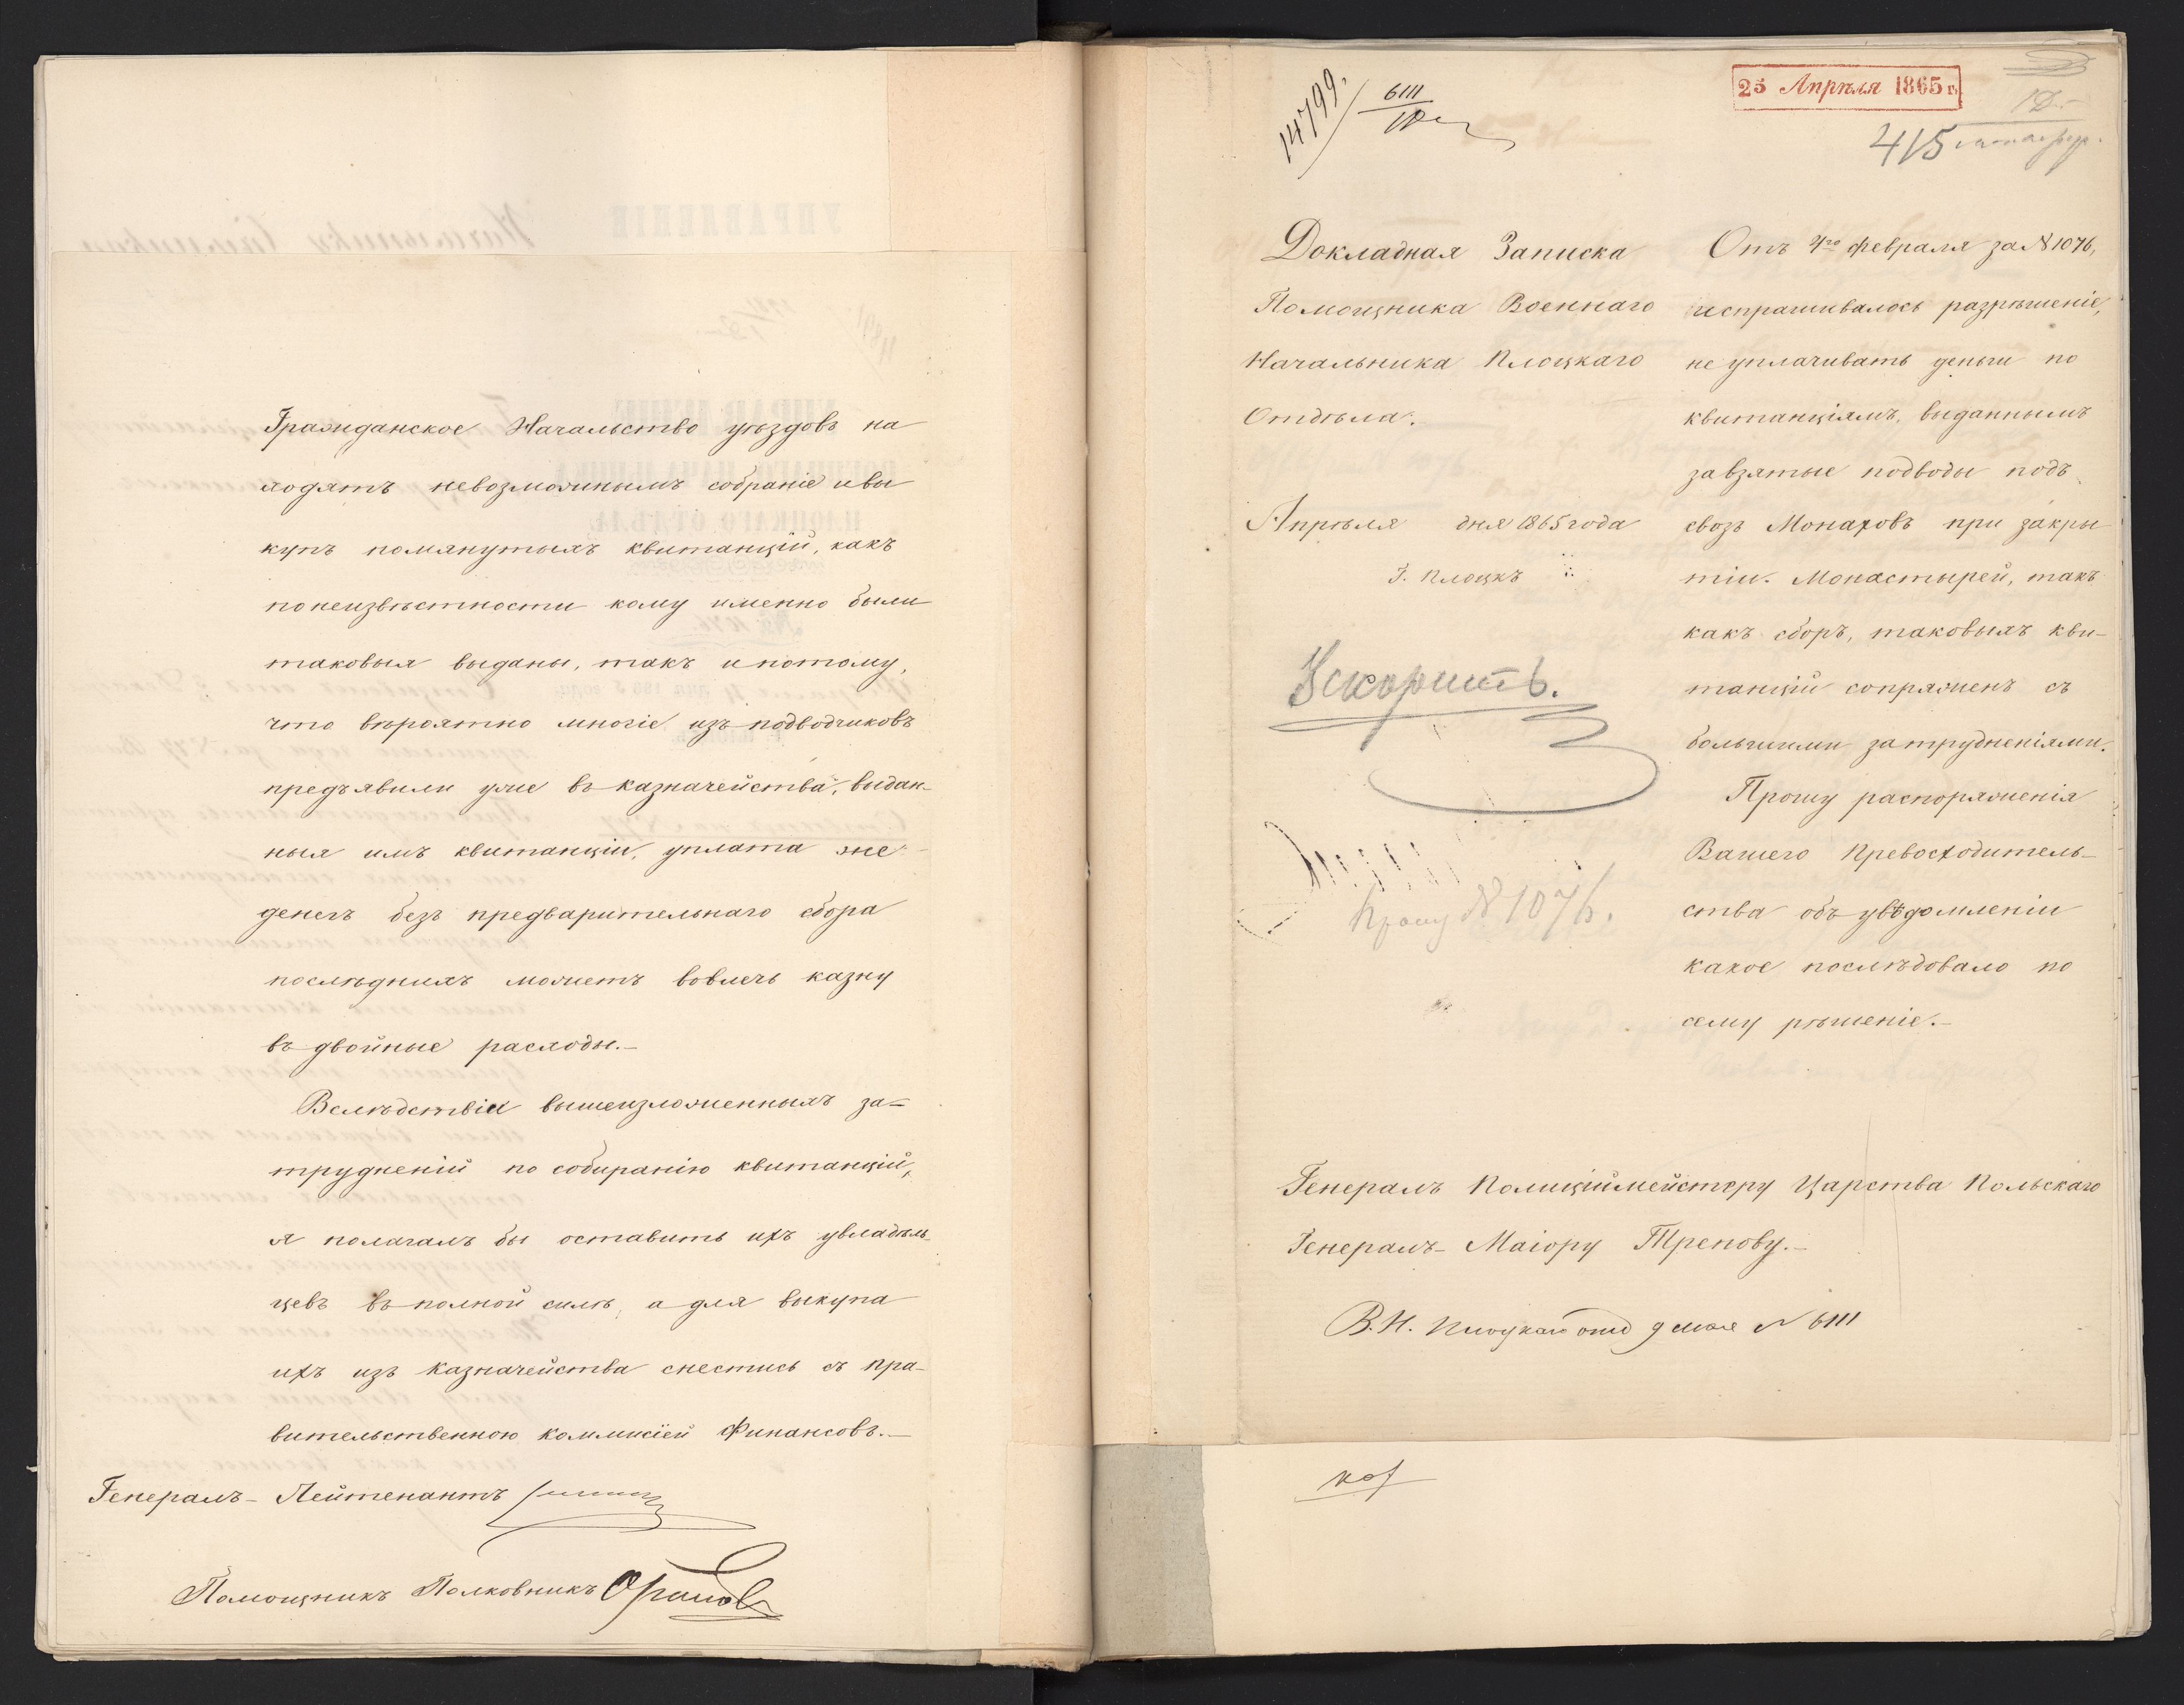 Гражданское Начальство уѣздовъ на
ходятъ невозможнымъ собраніе и вы
купъ помянутыхъ квитанцій, какъ
по неизвѣстности кому именно были
таковыя выданы, такъ и потому,
что вѣроятно многіе изъ подводчиковъ
предъявили уже въ казначейства, выдан-
ныя имъ квитанціи, уплата же
денегъ безъ предварительнаго сбора
послѣднихъ можетъ вовлечь казну
въ двойные расходы.-
Вслѣдствіи вышеизложенныхъ за=
трудненій по собиранію квитанцій,
я полагалъ бы оставить ихъ у владѣль-
цевъ въ полной силѣ, а для выкупа
ихъ изъ Казначейства снестись съ Пра-
вительственною Коммисіей Финансовъ.-
Генералъ-Лейтенантъ
Помощникъ Полковникъ
14799. 6111
25 Апрѣля 1865 г.
415
Докладная Записка
Помощника Военнаго
Начальника Плоцкаго
Отдѣла.
Апрѣля дня 1865 года
Г. Плоцкъ
Ускорить.
Прошу № 1076.
Отъ 4го февраля за № 1076,
испрашивалось разрѣшеніе,
не уплачивать деньги по
квитанціямъ, выданнымъ
за взятые подводы подъ
свозъ Монаховъ при закры
тіи Монастырей, такъ
какъ сборъ, таковыхъ кви-
танцій сопряженъ съ
большими затрудненіями.
Прошу распоряженія
Вашего Превосходитель-
ства объ увѣдомленіи
какое послѣдовало по
сему рѣшеніе.-
Генералъ Полиційймейстеру Царства Польскаго
Генералъ-Маіору Трепову.-
В. Н. Плоцкаго отд 9 мая № 6111